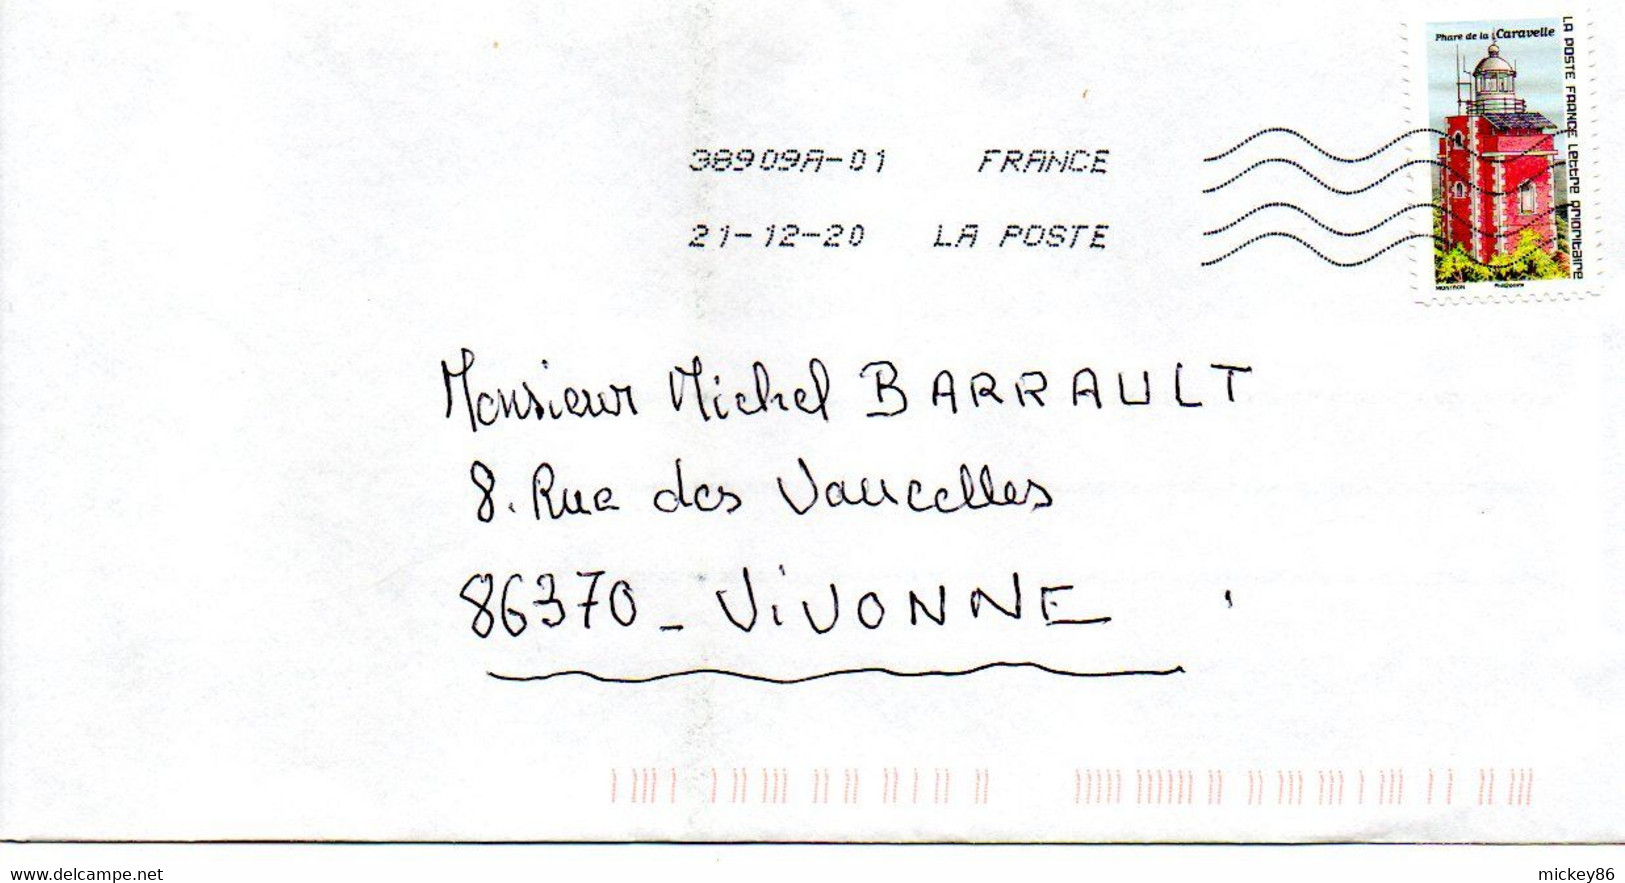 Phare de la Caravelle
LA POSTE FRANCE Lettre prioritaire
MONTRON Phil@poste
38909A-01 FRANCE
21-12-20 LA POSTE
Monsieur Michel BARRAULT
8. Rue des Vaucelles
86370 - ViVONNE
delcampe.net
mickey86